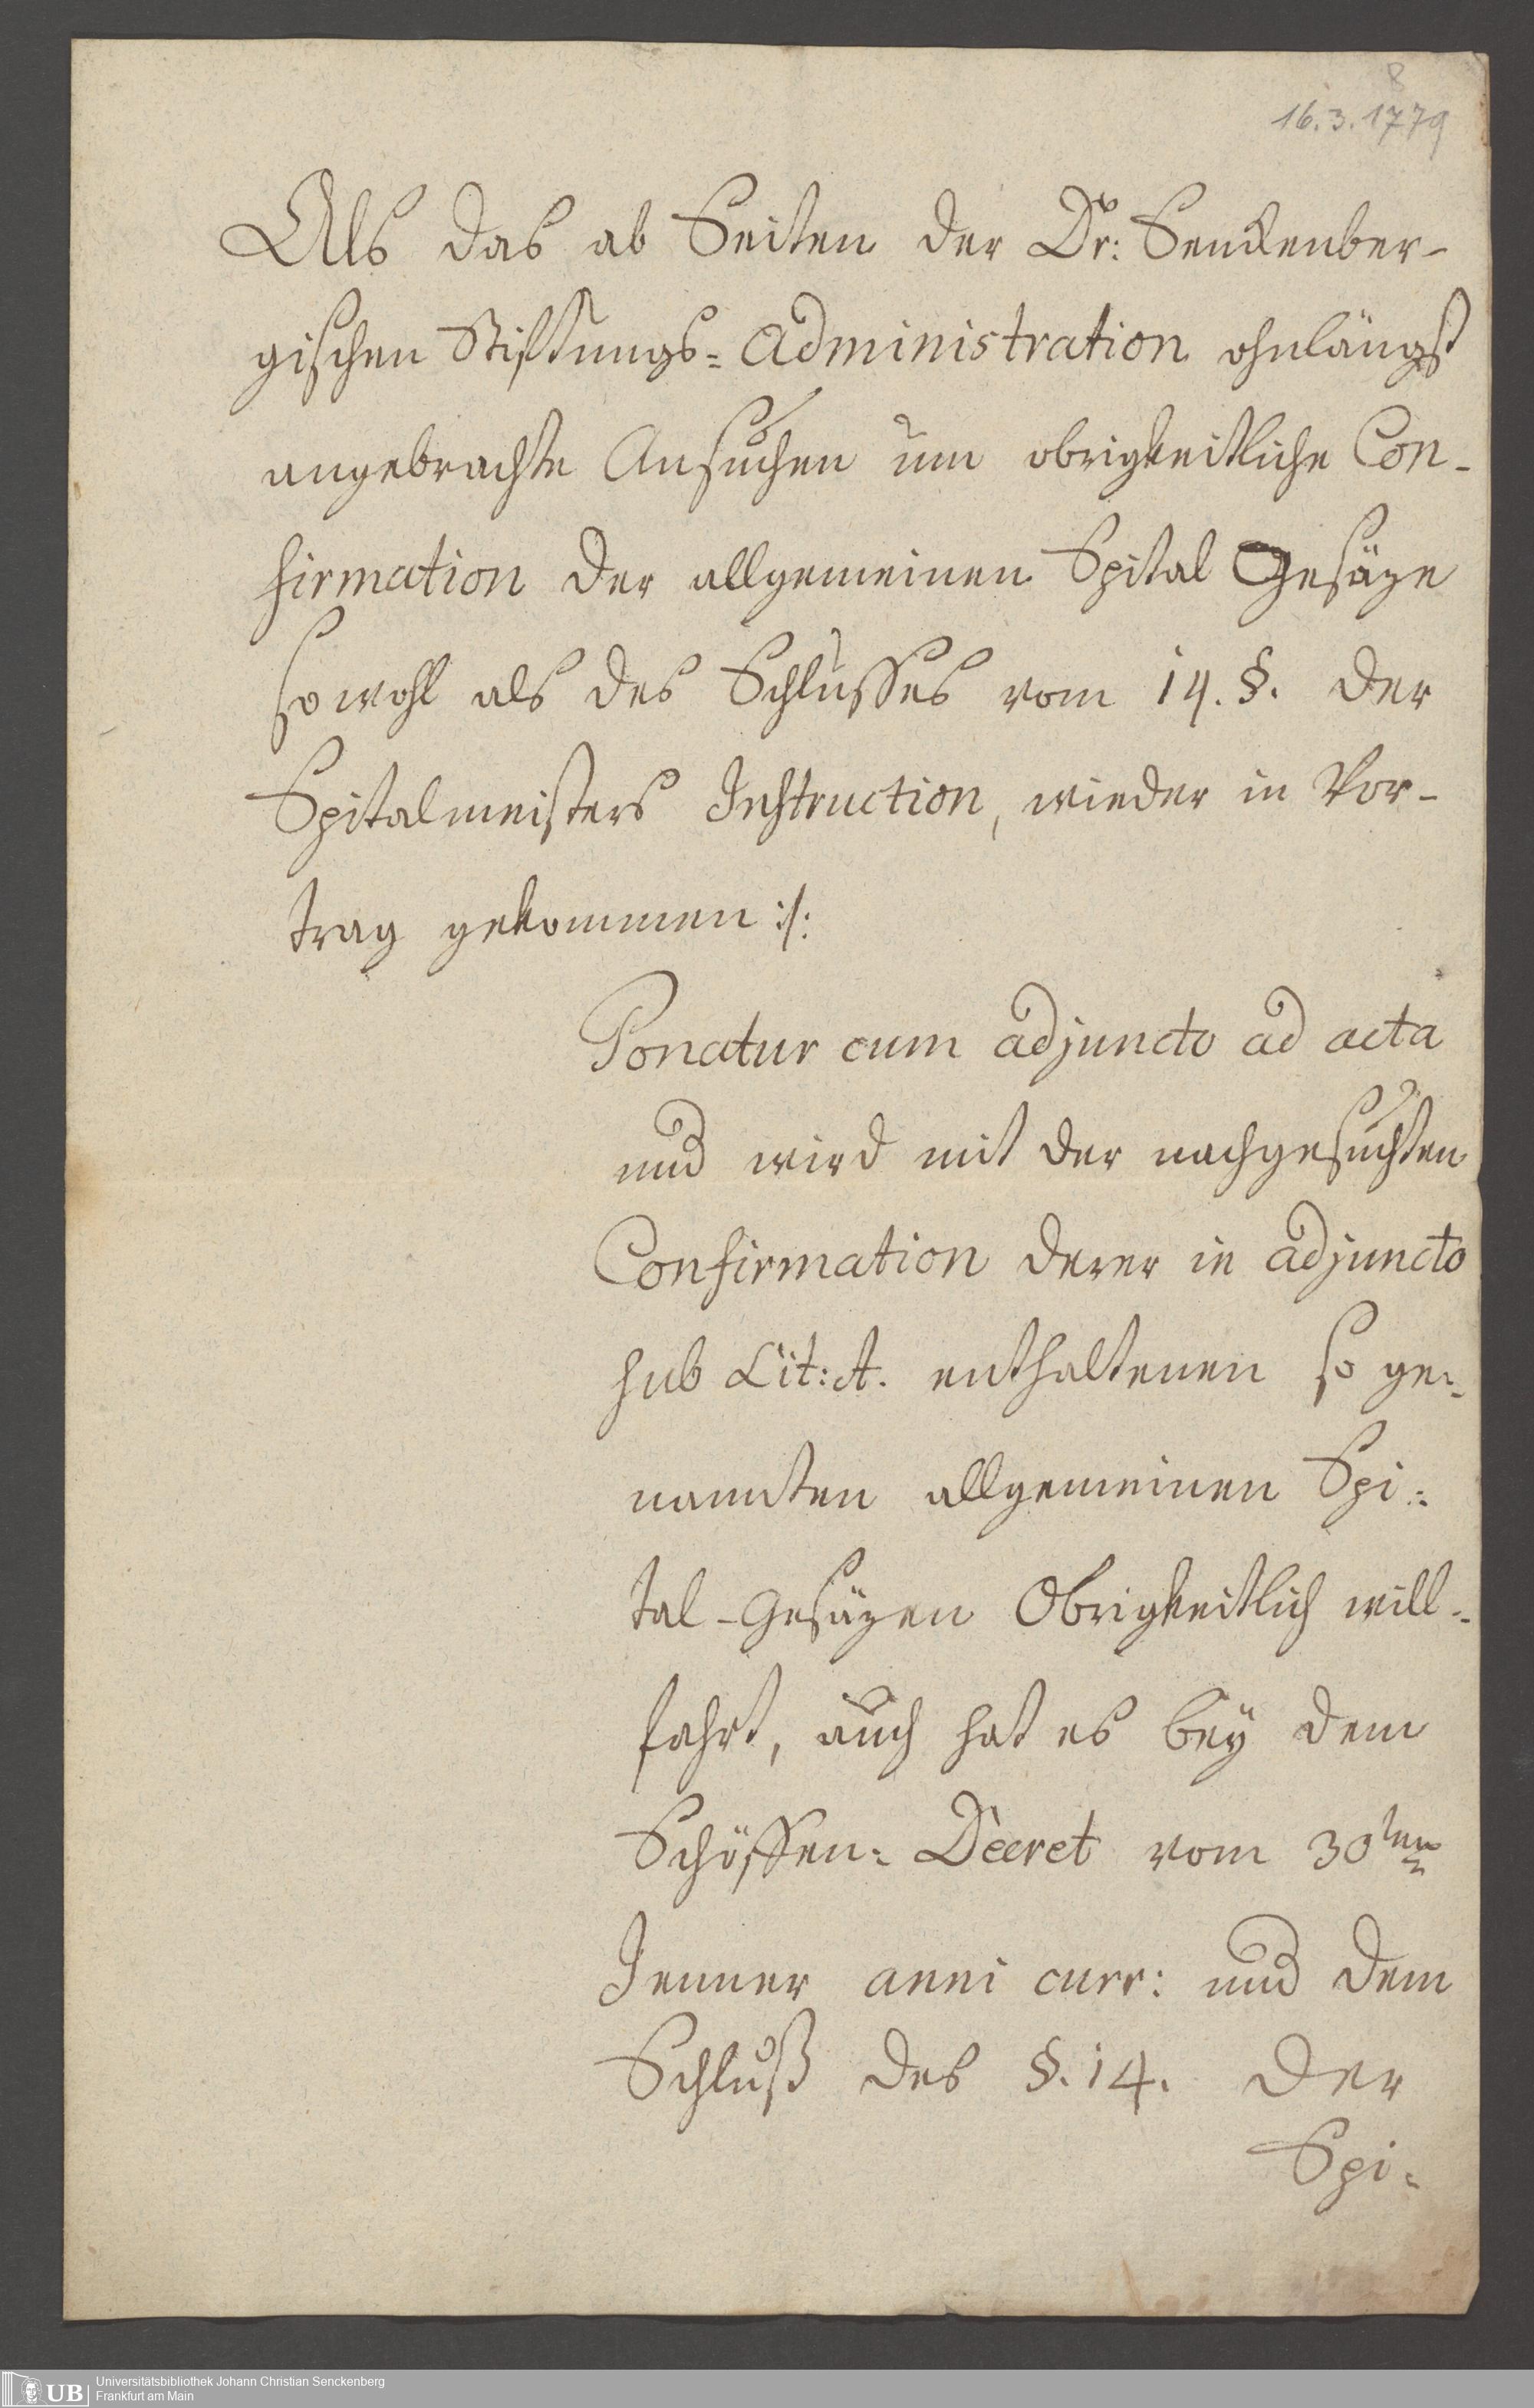 8
16.3.1779
Als das ab Seiten der Dr: Senckenber-
gischen Stiftungs-Administration ohnlängst
angebrachte Ansuchen um obrigkeitliche Con-
firmation der allgemeinen Spital Gesäze
sowohl als des Schlusses vom 14. §. der
Spitalmeisters Instruction, wieder in Vor-
trag gekommen :/:
Ponatur cum adjuncto ad acta
und wird mit der nachgesuchten
Confirmation derer in adjuncto
sub Lit: A. enthaltenen so ge-
nannten allgemeinen Spi-
tal-Gesäzen Obrigkeitlich will-
fahrt, auch hat es bey dem
Schöffen-Decret vom 30ten
Jenner anni curr: und dem
Schluß des §. 14. der
Spi-
UB Universitätsbibliothek Johann Christian Senckenberg
Frankfurt am Main